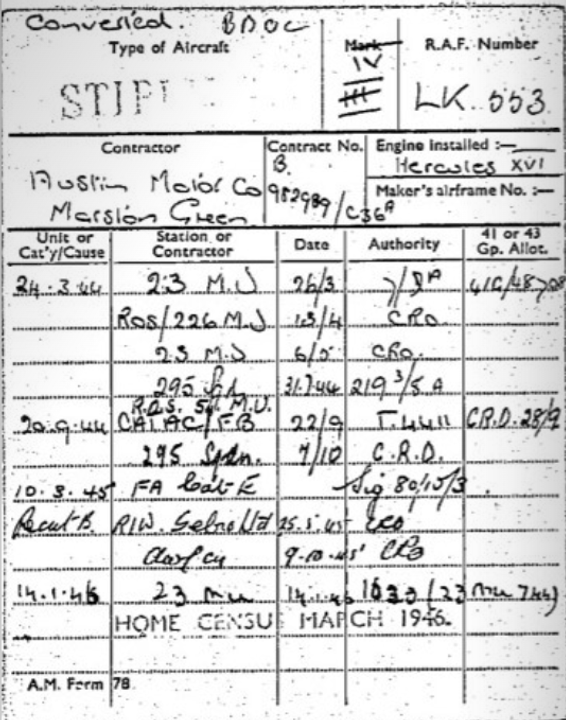 Converted.
Type of Aircraft Mark R.A.F. Number
IV
STI III LK 553
Contractor Contract No. Engine installed :—
B. Hercules XVI
Austin Motor Co 982989/C36A Maker's airframe No. :—
Marston Green
Unit or Cat'y/Cause Station or Contractor Date Authority 41 or 43 Gp. Allot.
24.3.44 23 M.U 26/3
ROS/226 M.U 13/4 CRO
23 M.U CRO.
295 31.7.44 219 3/5 A
R.O.S. M.U.
20.9.44 CAT AC/FB 22/9 T.4411 C.R.D. 28/9
295 Sqdn. 7/10 C.R.D.
10.3.45 FA Cat E Sig
Recat B. RIW. Sebro Ltd 25.5.45 CRO
9.10.45 CRO
14.1.46 23 mu 14.1.46 (23 mu 744)
HOME CENSUS MARCH 1946.
A.M. Form 78